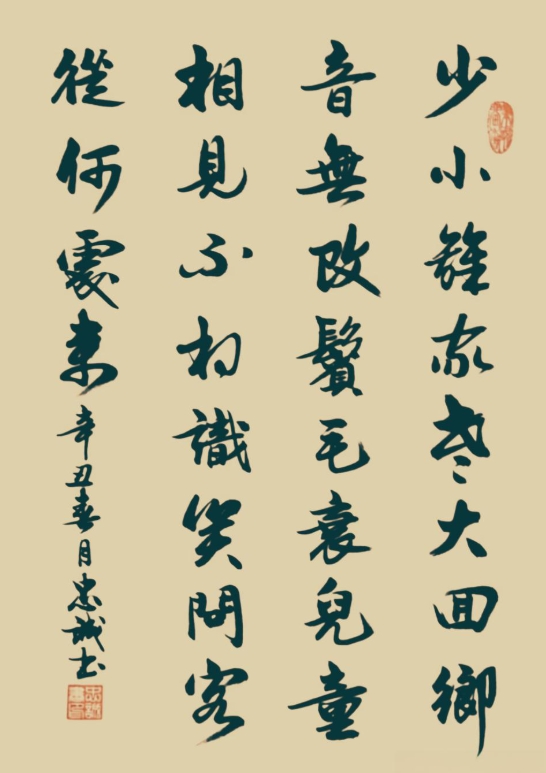 少小離家老大回鄉
音無改鬢毛衰兒童
相見不相識笑問客
從何處來
辛丑春月忠誠書